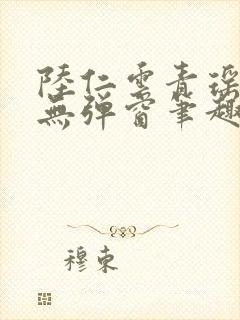 陸仁雲青瑤
無彈窗筆趣
穆東